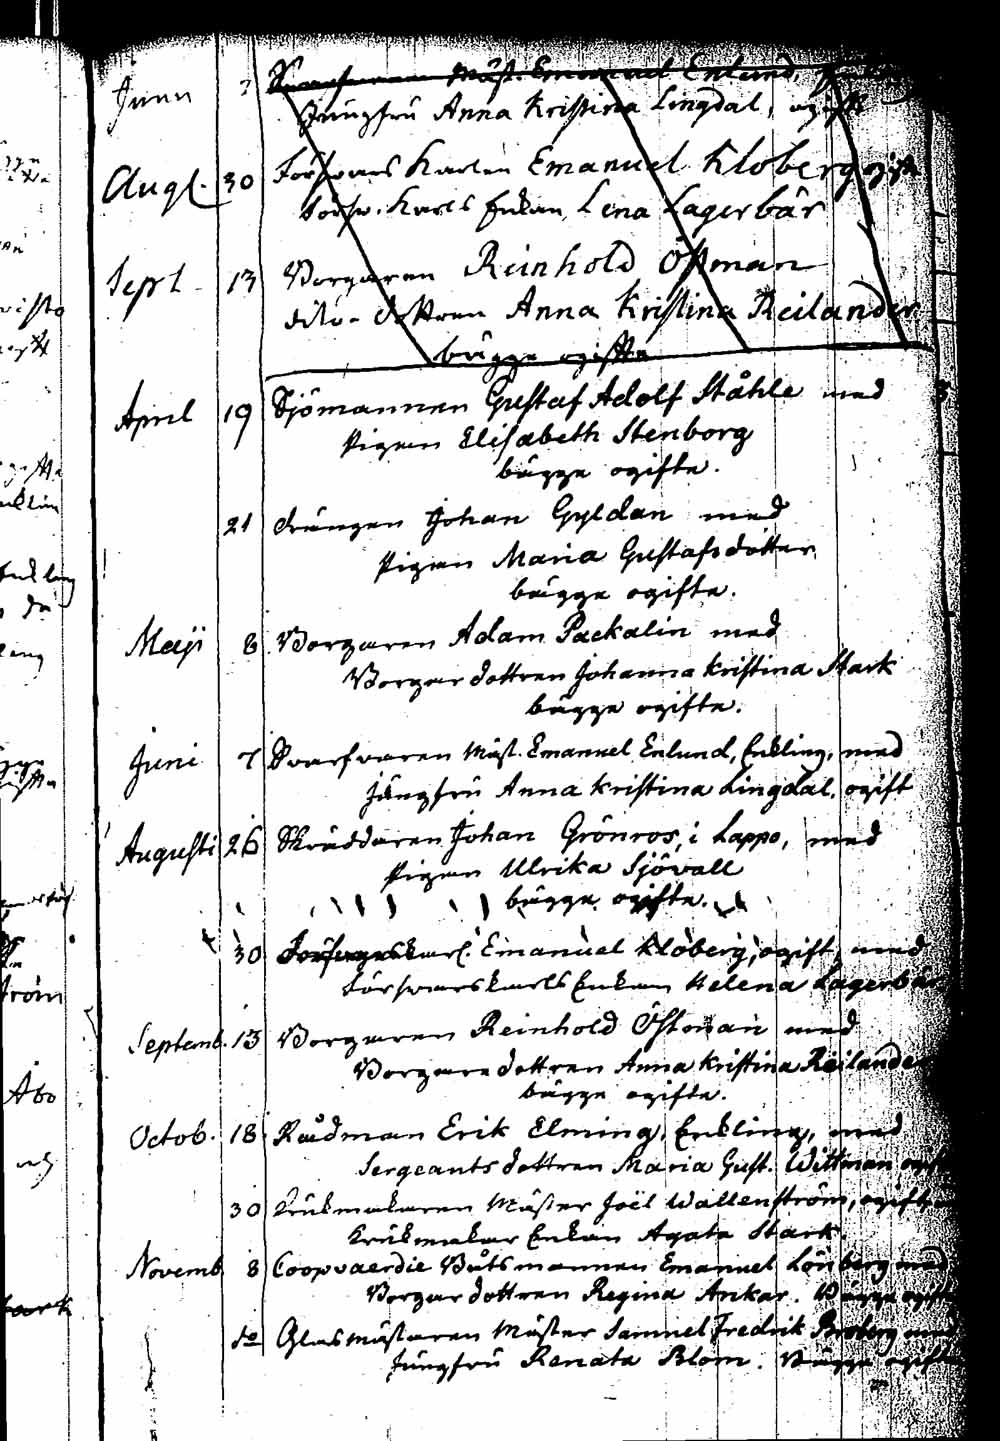 Junii 7 Svarfvaren Mäst. Emanuel Enlund,
Jungfru Anna Kristina Lingdal, ogift
Augt. 30 Försvars Karlen Emanuel Kloberg ogift
Försv. Karls Enkan Lena Lagerbär
Sept. 13 Borgaren Reinhold Östman
dito- dottren Anna Kristina Reilander
bägge ogifta
April 19 Sjömannen Gustaf Adolf Ståhle med
Pigan Elisabeth Stenborg
bägge ogifta.
21 Drängen Johan Gyldan med
Pigan Maria Gustafsdotter
bägge ogifta.
Maji 8 Borgaren Adam Packalin med
Borgar dottren Johanna Kristina Stark
bägge ogifta.
Juni 7 Svarfvaren Mäst. Emanuel Enlund, Enkling, med
Jungfru Anna Kristina Lingdal, ogift
Augusti 26 Skräddaren Johan Grönros, i Lappo, med
Pigan Ulrika Sjövall
bägge ogifta.
30 Försvarskarl. Emanuel Kloberg, ogift, med
Försvarskarls Enkan Helena Lagerbär
Septemb. 13 Borgaren Reinhold Östman med
Borgare dottren Anna Kristina Reilander
bägge ogifta.
Octob. 18 Rådman Erik Elming, Enkling, med
Sergeants dottren Maria Gust. Wittman ogift
30 Krukmakaren Mäster Joël Wallenström, ogift,
Krukmakar Enkan Agata Stark.
Novemb. 8 Coopvaerdie Båtsmannen Emanuel Lönberg med
Borgar dottren Regina Ankar. Bägge ogifta
do Glasmästaren Mäster Samuel Fredrik Broberg med
Jungfru Renata Blom. Bägge ogifta